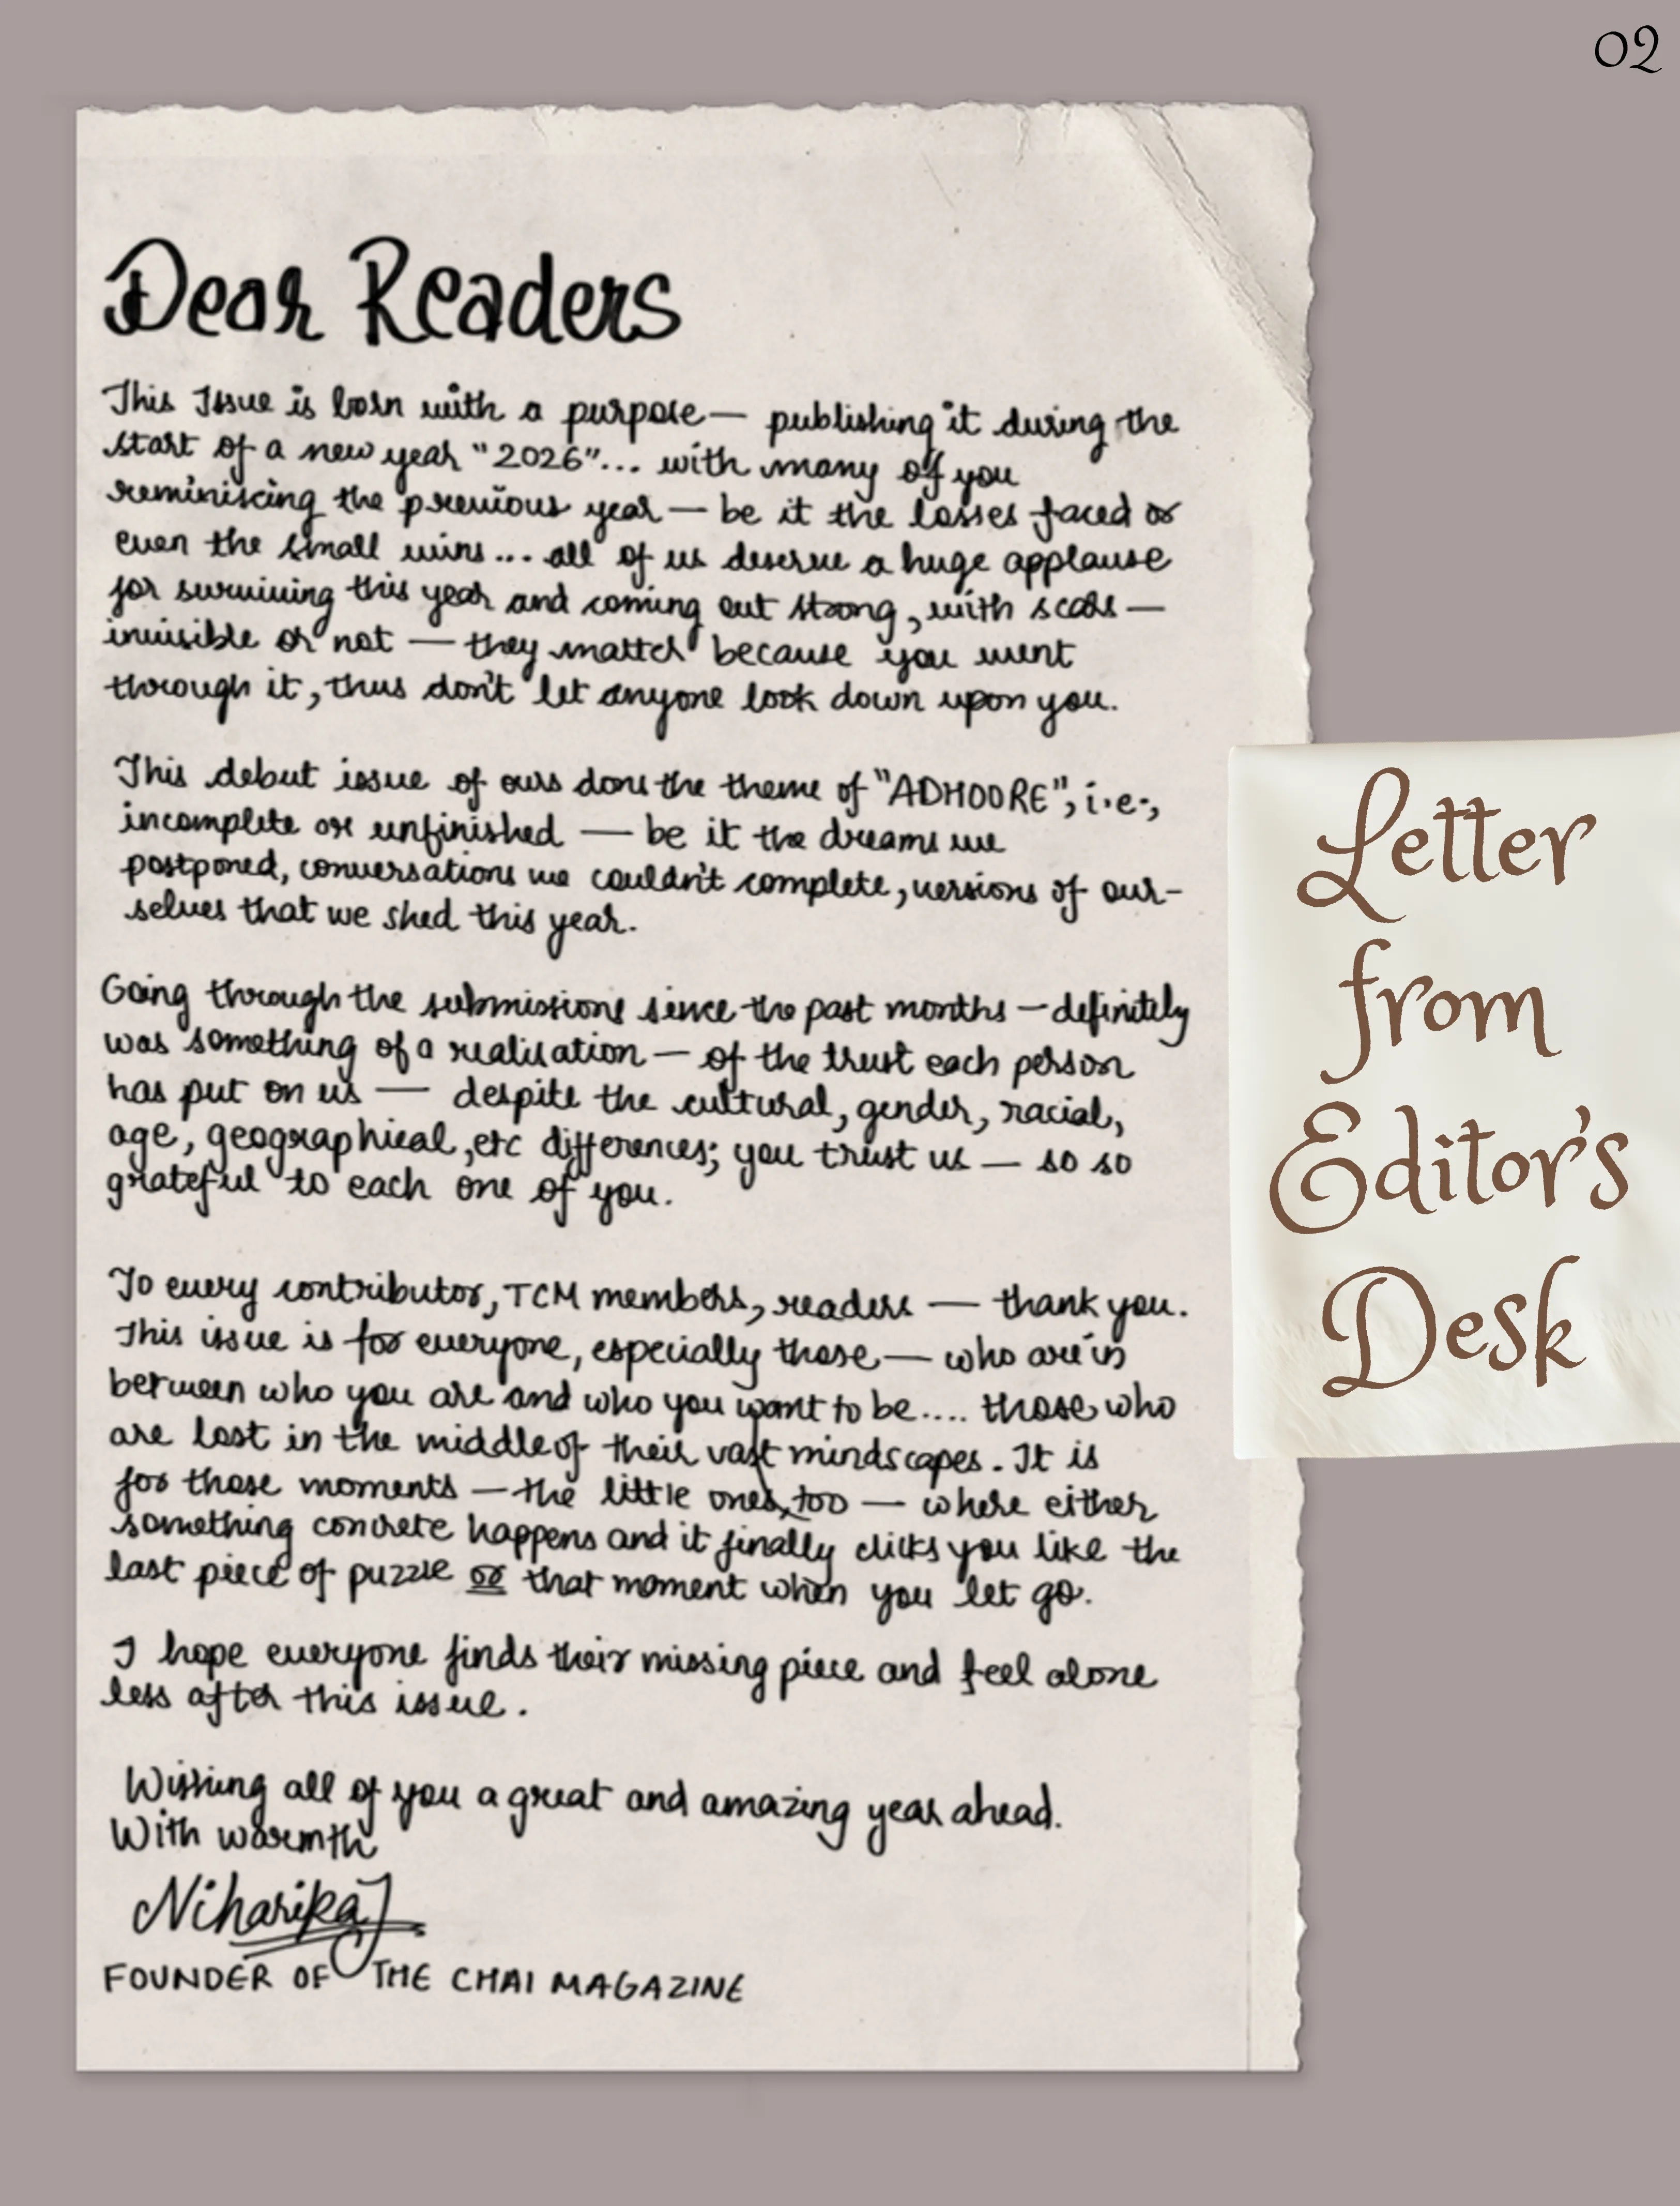 02
Dear Readers
This Issue is born with a purpose — publishing it during the
start of a new year "2026"... with many of you
reminiscing the previous year — be it the losses faced or
even the small wins... all of us deserve a huge applause
for surviving this year and coming out strong, with scars —
invisible or not — they matter because you went
through it, thus don't let anyone look down upon you.
This debut issue of ours dons the theme of "ADHOORE", i.e.,
incomplete or unfinished — be it the dreams we
postponed, conversations we couldn't complete, versions of our-
selves that we shed this year.
Going through the submissions since the past months — definitely
was something of a realisation — of the trust each person
has put on us — despite the cultural, gender, racial,
age, geographical, etc differences; you trust us — so so
grateful to each one of you.
To every contributor, TCM members, readers — thank you.
This issue is for everyone, especially those — who are in
between who you are and who you want to be.... those who
are lost in the middle of their vast mindscapes. It is
for those moments — the little ones, too — where either
something concrete happens and it finally clicks you like the
last piece of puzzle or that moment when you let go.
I hope everyone finds their missing piece and feel alone
less after this issue.
Wishing all of you a great and amazing year ahead.
With warmth
Niharika J
FOUNDER OF THE CHAI MAGAZINE
Letter
from
Editor's
Desk